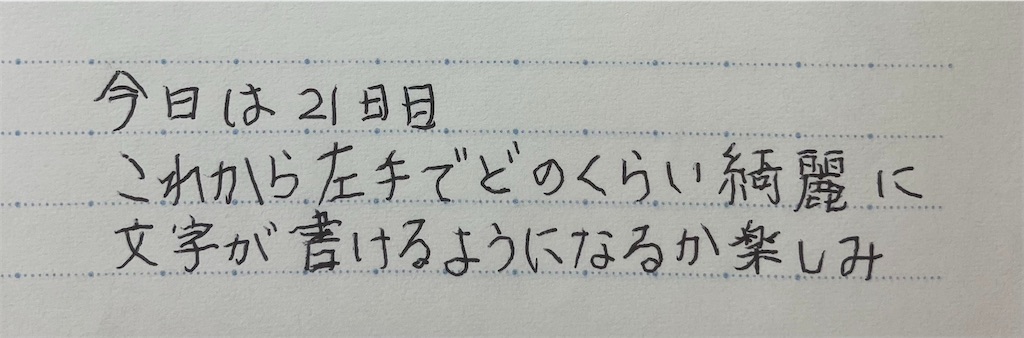 今日は21日目
これから左手でどのくらい綺麗に
文字が書けるようになるか楽しみ